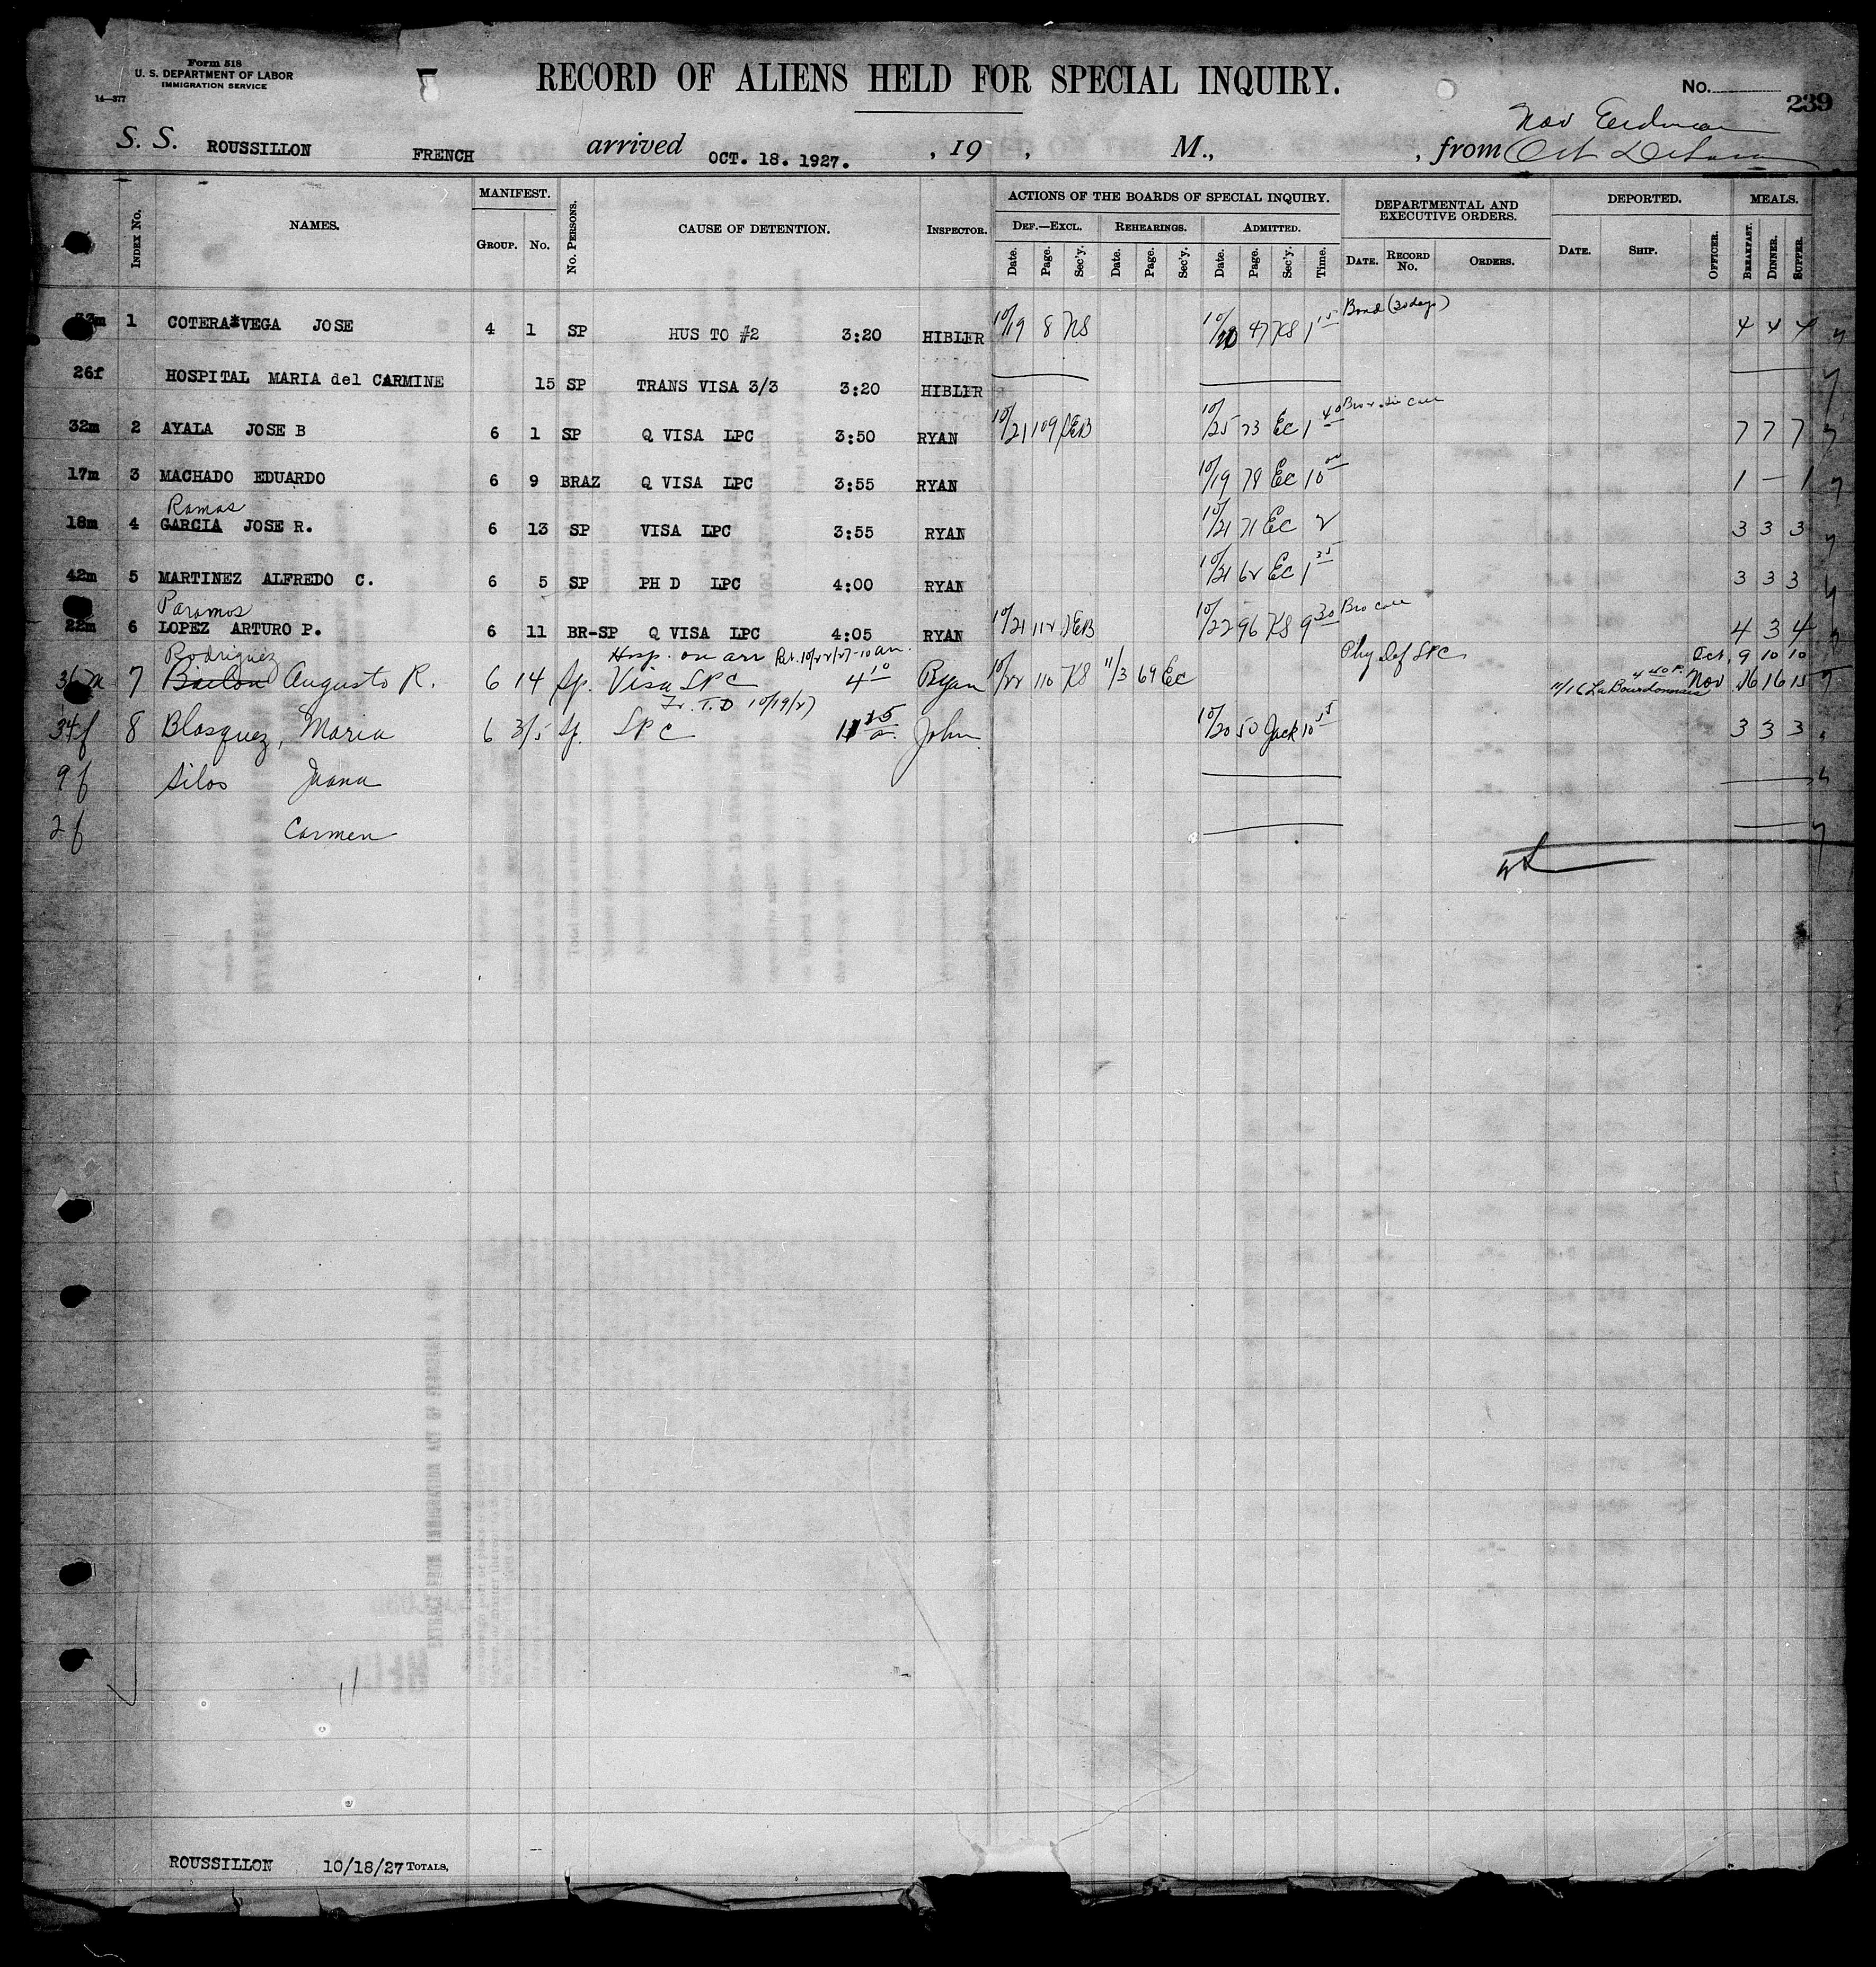 Form 518
U. S. DEPARTMENT OF LABOR
IMMIGRATION SERVICE
14—377
RECORD OF ALIENS HELD FOR SPECIAL INQUIRY.
No.
239
Nov Eerdman
S. S. ROUSSILLON FRENCH arrived OCT. 18. 1927. , 19 , M., , from Oct
Index No. NAMES. MANIFEST. Group. No. No. Persons. CAUSE OF DETENTION. Inspector. ACTIONS OF THE BOARDS OF SPECIAL INQUIRY. DEPARTMENTAL AND EXECUTIVE ORDERS. DEPORTED. MEALS.
Def.—Excl. Rehearings. Admitted.
Date. Page. Sec'y. Date. Page. Sec'y. Date. Page. Sec'y. Time. Date. Record No. Orders. Date. Ship. Officer. Breakfast. Dinner. Supper.
Bond (30 days)
33m 1 COTERA*VEGA JOSE 4 1 SP HUS TO #2 3:20 HIBLER 10/19 8 KS 10/20 47 KS 1 15 4 4 4
26f HOSPITAL MARIA del CARMINE 15 SP TRANS VISA 3/3 3:20 HIBLER
32m 2 AYALA JOSE B 6 1 SP Q VISA LPC 3:50 RYAN 10/21 109 JEB 10/25 73 EC 1 40 7 7 7
17m 3 MACHADO EDUARDO 6 9 BRAZ Q VISA LPC 3:55 RYAN 10/19 78 EC 10 00 1 — 1
Ramos
18m 4 GARCIA JOSE R. 6 13 SP VISA LPC 3:55 RYAN 10/21 71 EC 2 3 3 3
42m 5 MARTINEZ ALFREDO C. 6 5 SP PH D LPC 4:00 RYAN 10/21 62 EC 1 35 3 3 3
Paramos
22m 6 LOPEZ ARTURO P. 6 11 BR-SP Q VISA LPC 4:05 RYAN 10/21 112 JEB 10/22 96 KS 9 30 Bro call 4 3 4
Rodriguez Hosp. on arr Ret. 10/22/27-10 am. Phy Def LPC Oct. 9 10 10
36m 7 Bailon Augusto R. 6 14 Sp. Visa LPC 4 10 Ryan 10/22 110 KS 11/3 69 EC 11/16 LaBourdonnais Nov. 16 16 15
Fr. T.D 10/19/27
34f 8 Blasquez, Maria 6 3/5 Sp. LPC 11 25 a. John 10/20 50 Jack 10 55 3 3 3
9f Silos Juana
2f Carmen
ROUSSILLON 10/18/27 Totals,